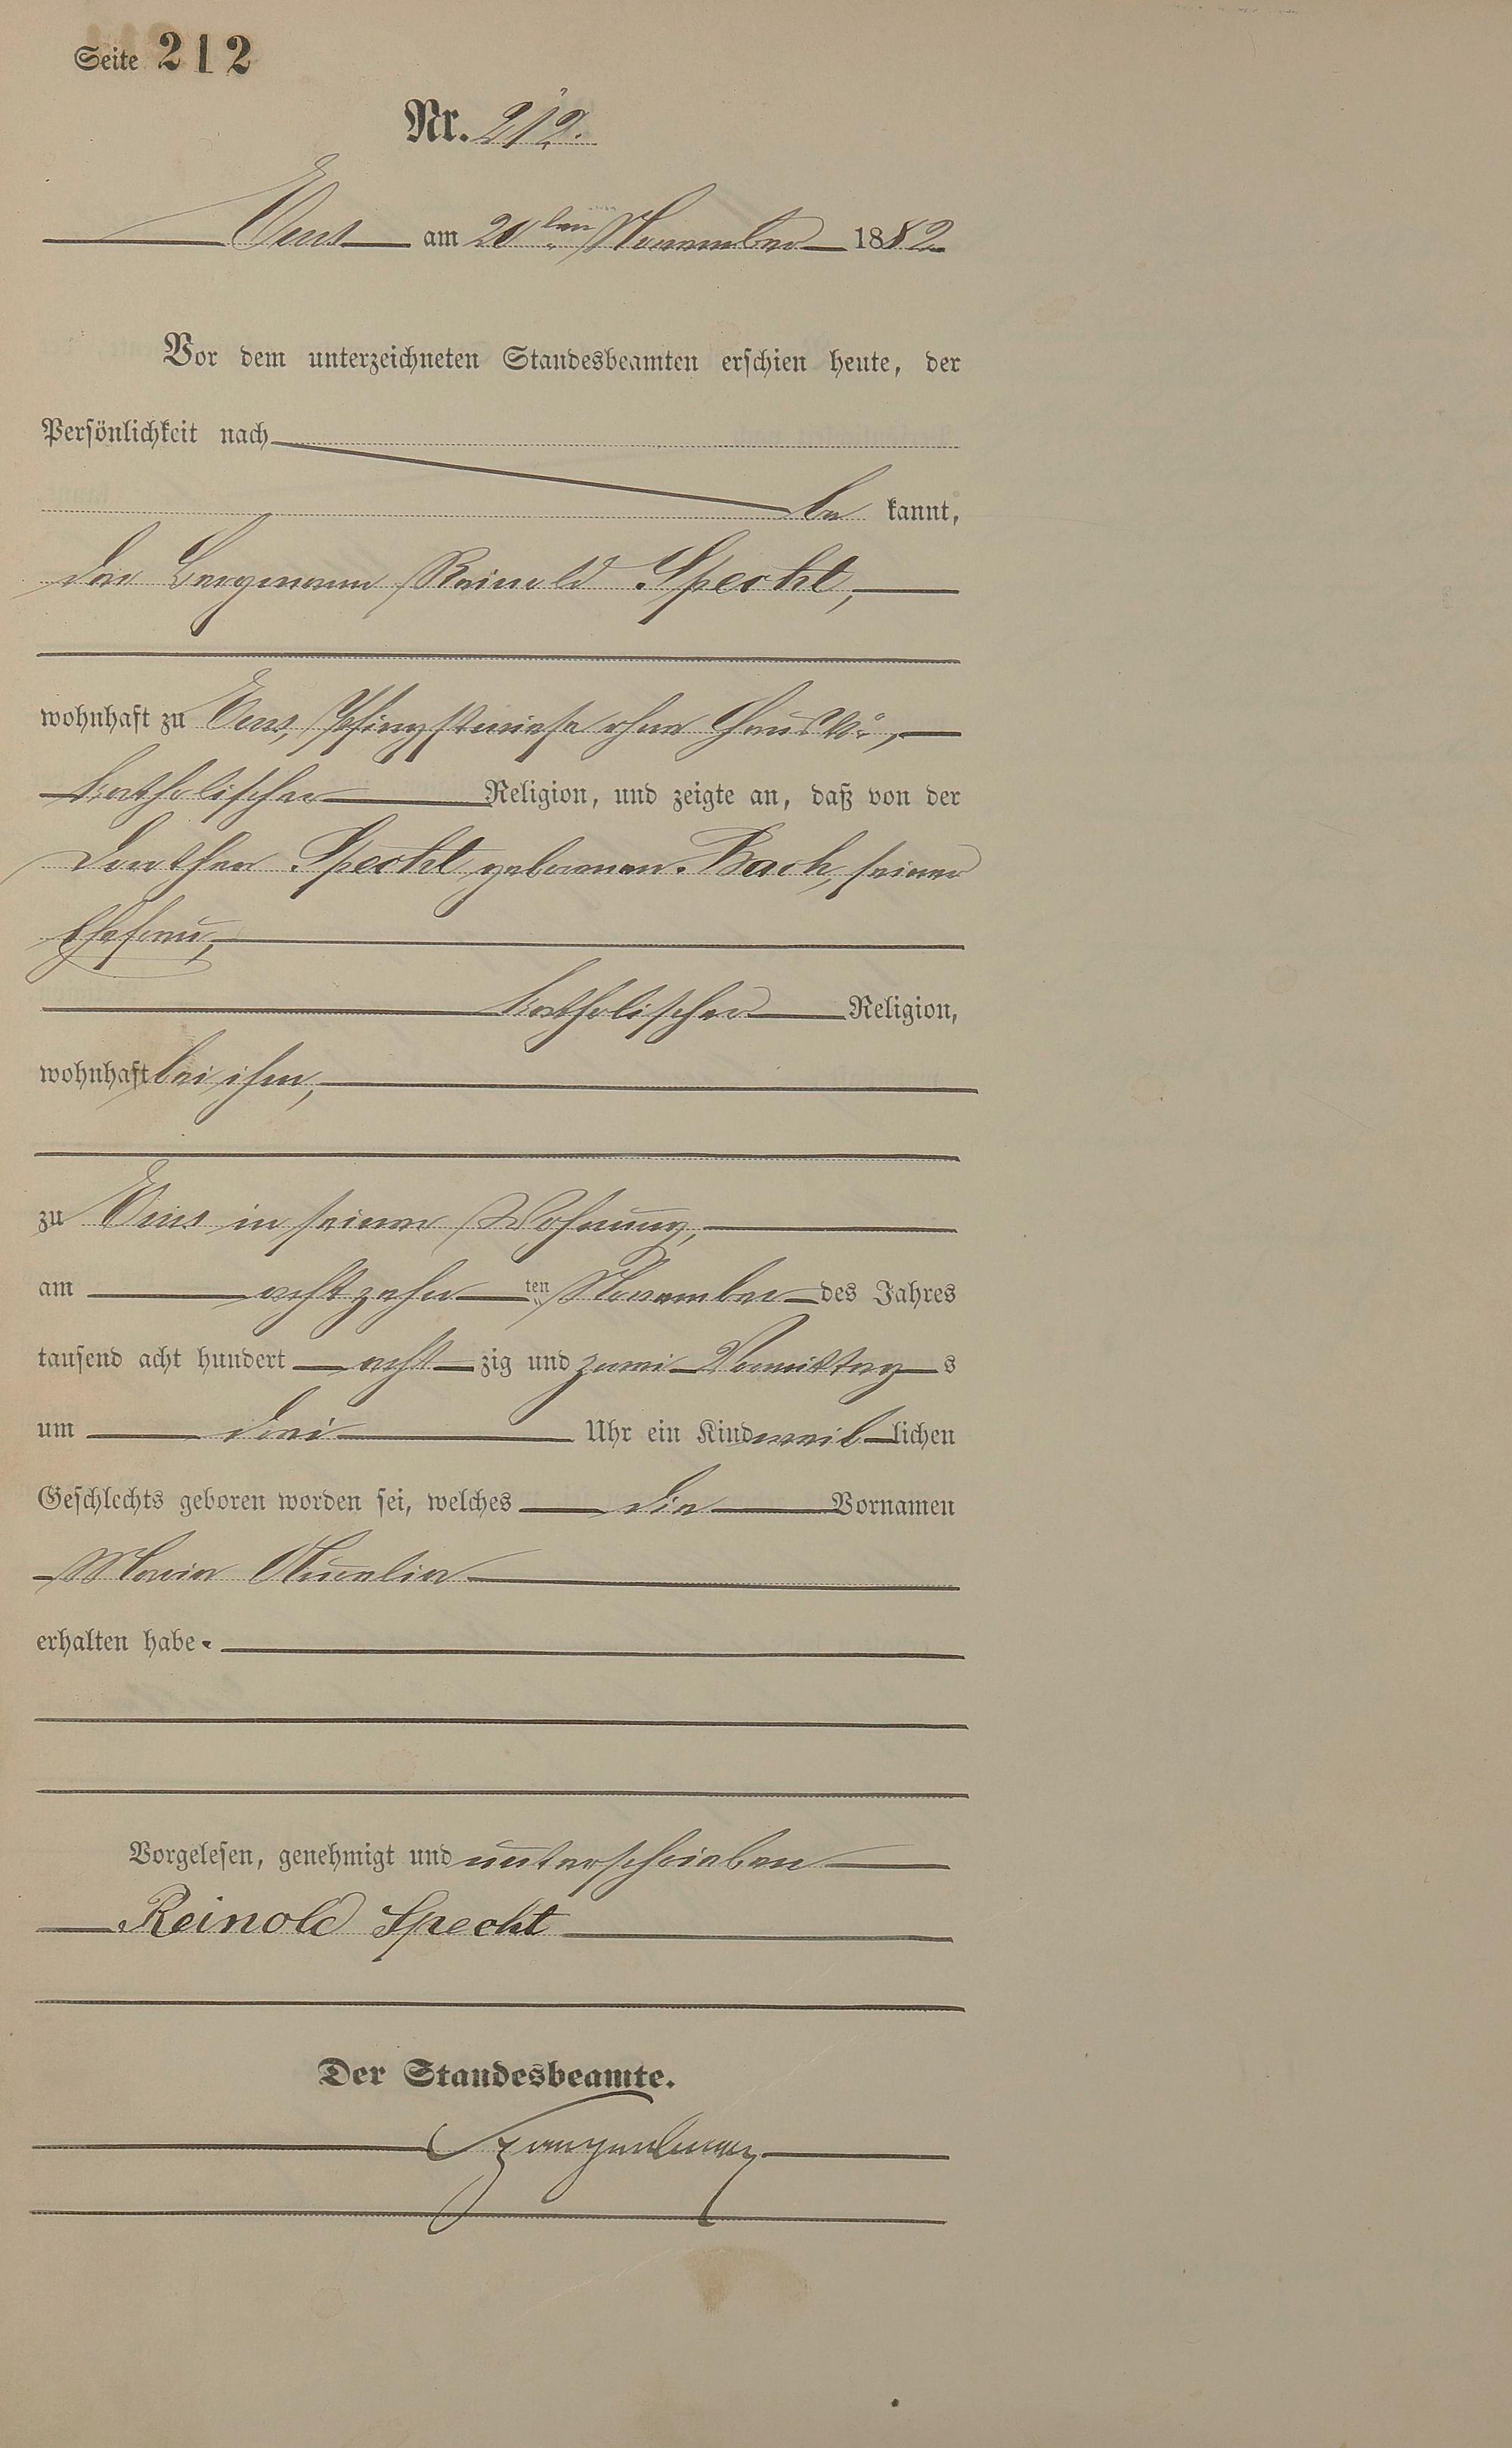 Seite 212
Nr. 212.
Ems am 20ten November 1882
Vor dem unterzeichneten Standesbeamten erschien heute, der
Persönlichkeit nach
be kannt,
der Bergmann Reinold Specht,
wohnhaft zu Ems, Pfingstwiese ohne Haus No.,
katholischer Religion, und zeigte an, daß von der
Dorthea Specht geborenen Bach, seiner
Ehefrau,
katholischer Religion,
wohnhaft bei ihm,
zu Ems in seiner Wohnung,
am achtzehn ten November des Jahres
tausend acht hundert acht zig und zwei Vormittag s
um drei Uhr ein Kind weib lichen
Geschlechts geboren worden sei, welches die Vornamen
Maria Aurelia
erhalten habe.
Vorgelesen, genehmigt und unterschrieben
Reinold Specht
Der Standesbeamte.